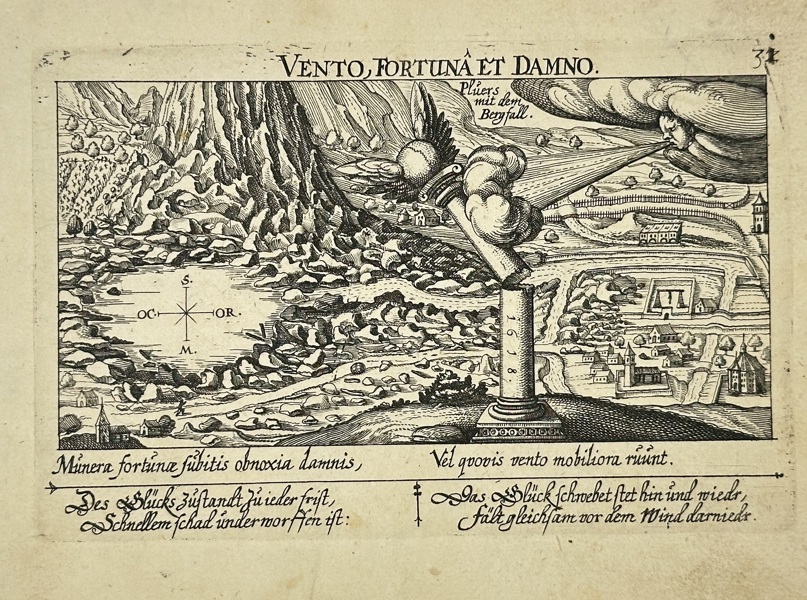 VENTO, FORTUNÂ ET DAMNO.
Plüers
mit dem
Bergfall.
S.
OC OR.
M.
1618
Munera fortunæ subitis obnoxia damnis,
Vel qvovis vento mobiliora ruunt.
Des Glücks Zustandt zu ieder frist,
Schnellem schad underworffen ist:
Das Glück schwebet stet hin und wiedr,
fält gleichsam vor dem Wind darniedr.